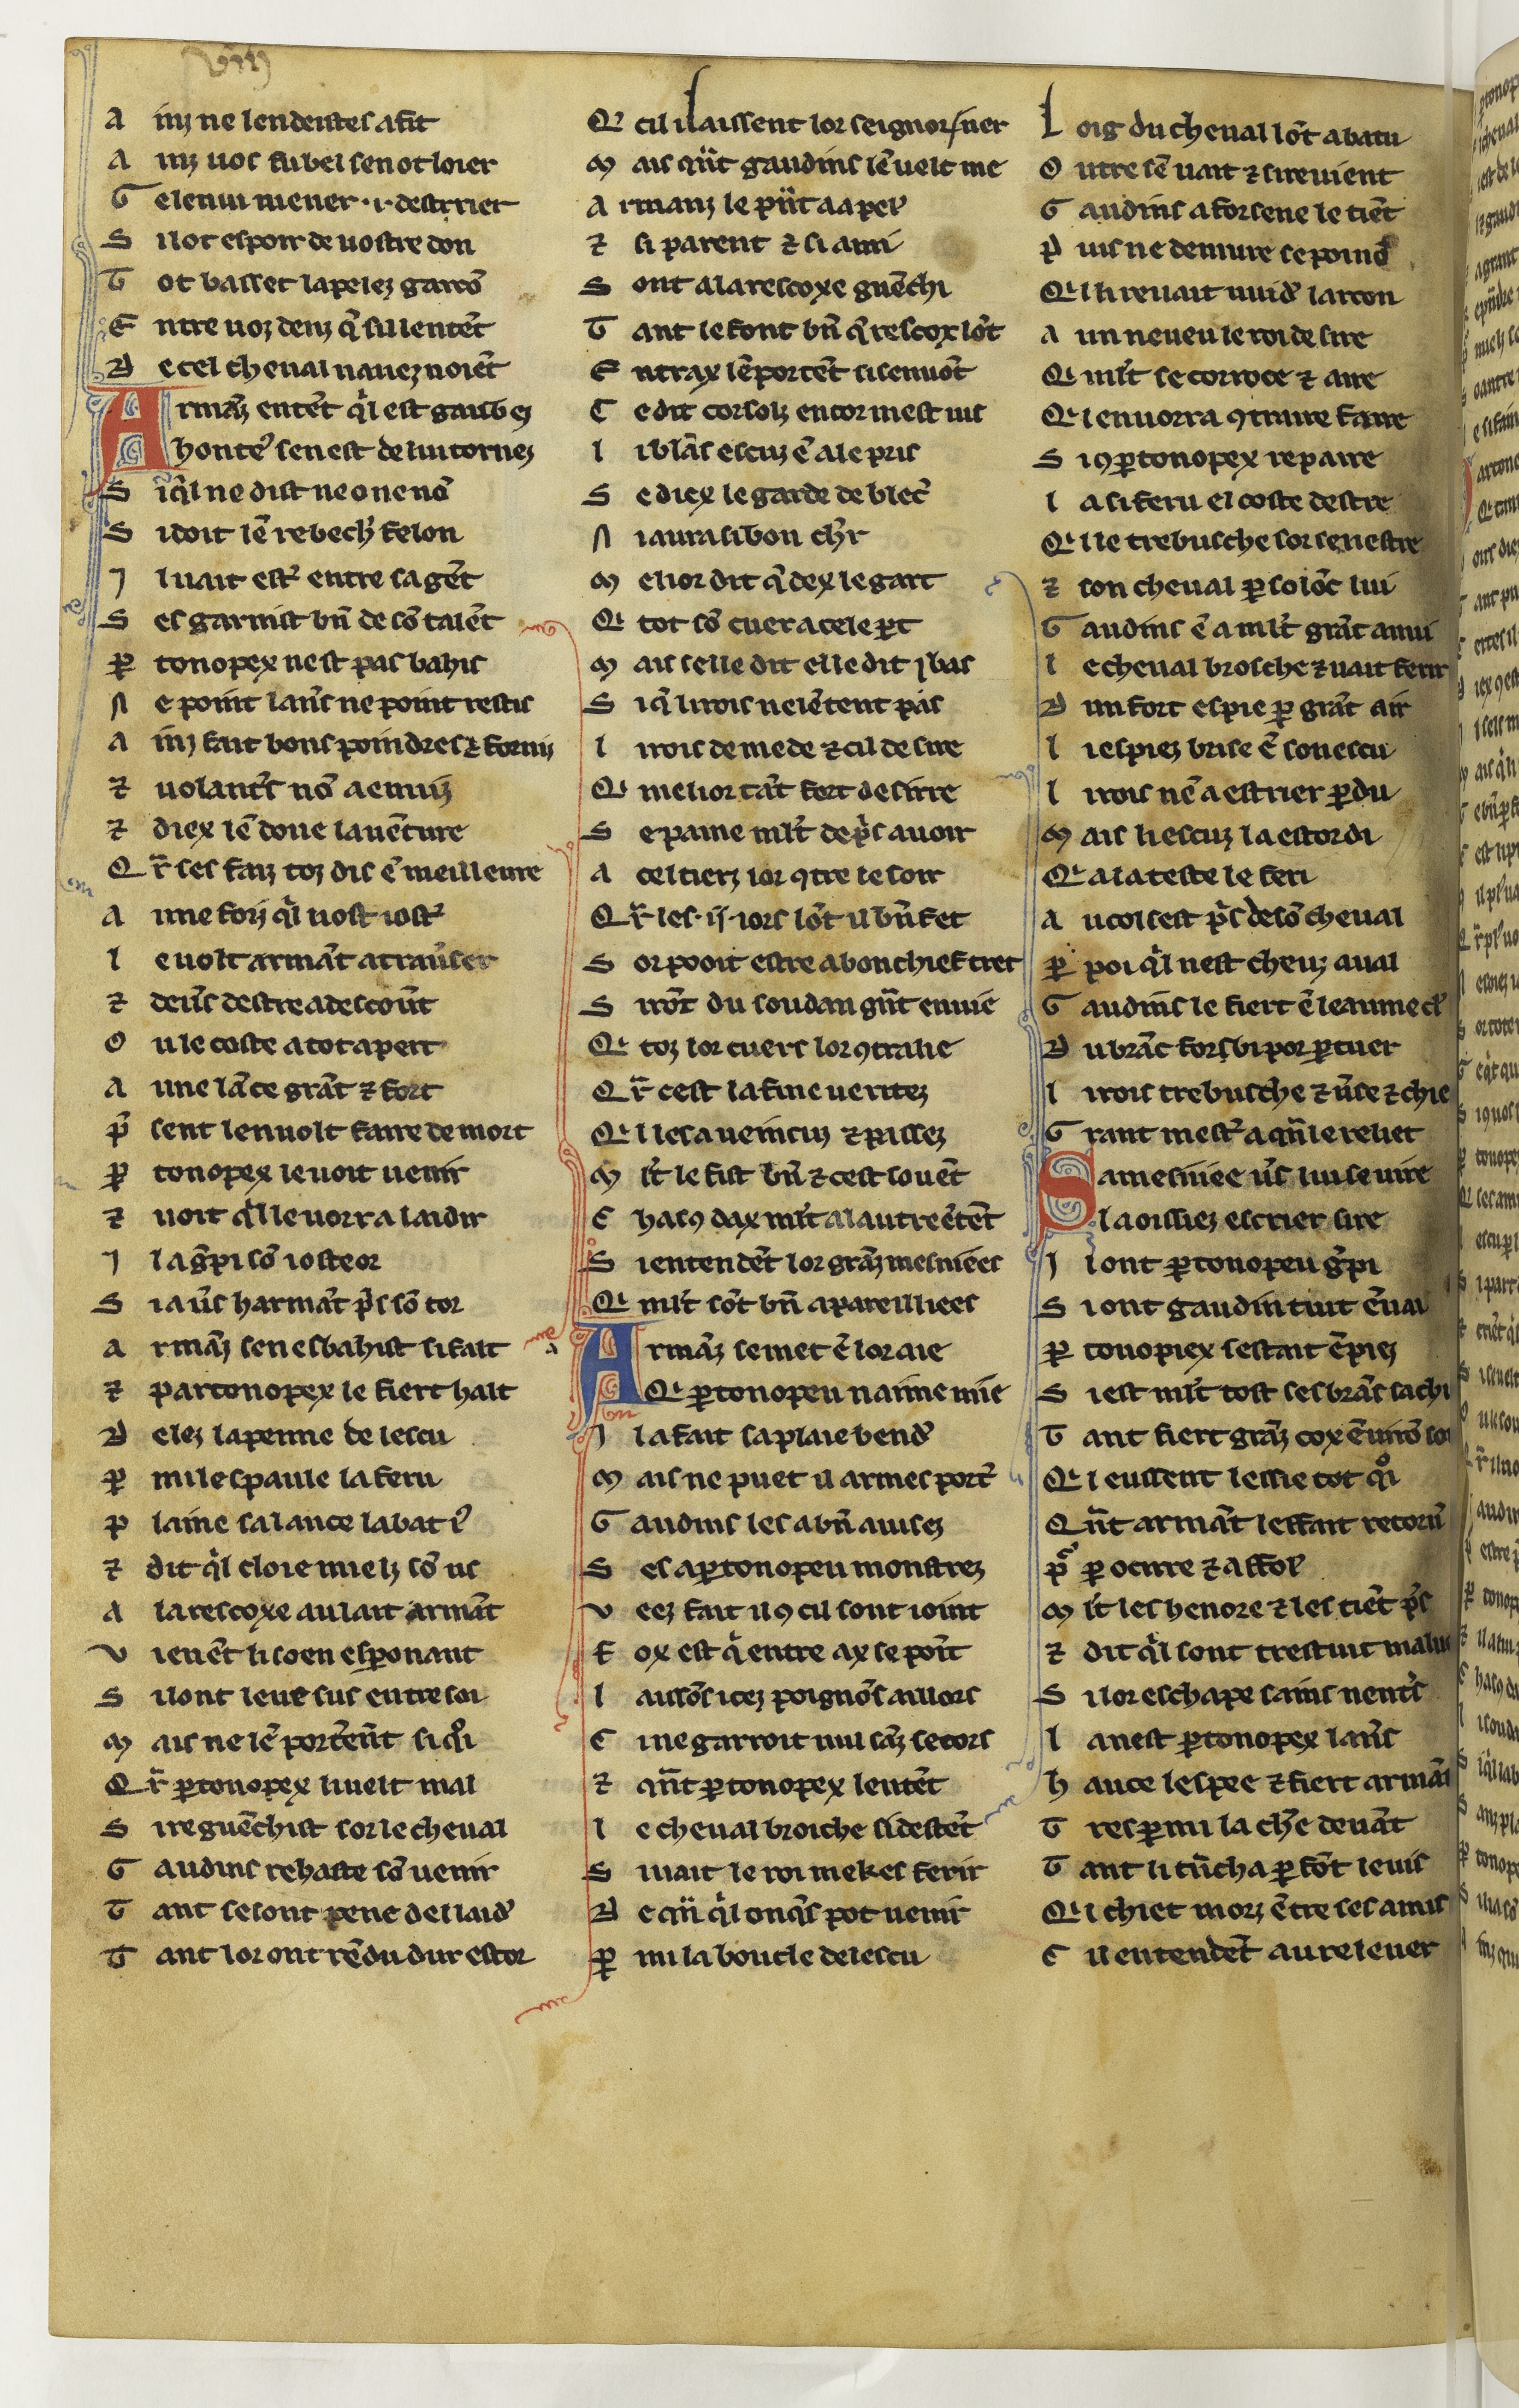 A inz ne lendeistes afit
A inz uos fu bel sen ot loier
G elenui mener .i. destrier
S il ot espoir de uostre don
T ot basset lapelez garcō
E ntre uoz deuz q̄ sil lentēt
D e cel cheual nauez noiēt
A rmāz entēt q̍l est gaubez
honteˀ sen est de lui tornez
S i q̍l ne dist ne o ne nō
S i doit lē rebech̓ felon
J l uait estˀ entre sa gēt
S es garnist bn̄ de sō talēt
ꝑ tonopex nest pas bahis
N e point lanc̄ ne point restis
A inz fait bons poindres ⁊ forniz
⁊ uolantc̄s nō a enuiz
⁊ diex lē doue lauēture
Q r̄ ses faiz toz dis ē meilleure
A une foiz q̍l uost iostˀ
l e uolt armāt a trau̓ser
⁊ deu̓s destre a descou̓t
O u le coste a tot apert
A une lāce grāt ⁊ fort
p̄ sent len uolt faire de mort
ꝑ tonopex le uoit uenir
⁊ uoit q̍l le uorra laidir
J l a g̓pi sō iosteor
S i a u̓s harmāt p̓s sō tor
A rmāz sen esbahist si fait
⁊ partonopex le fiert hait
D elez la penne de lescu
ꝑ mi lespaule la feru
P laine sa lance labatiˀ
⁊ dit q̍l cloie mielz sō us
A la rescoxe au lait armāt
V ienēt li soen esꝑonant
S il ont leue sus entre soi
M ais ne lē portēnt si q̊i
Q r̄ ꝑtonopex li uelt mal
S i reguēchist sor le cheual
G audins rehaste sō uenir
T ant se sont pene del laidˀ
T ant lor ont rēdu dur estor
Q̇ cil i laissent lor seignor sner
M ais qn̄t gaudins lē uelt me
A rmanz le pn̄t a apelˀ
⁊ si parent ⁊ si ami
S ont a la rescoxe guēchi
T ant le font bn̄ q̄ rescox lōt
E ntrax lē portēt si sen uōt
C e dit corsolz encor mest uis
l i blās escuz ē a le pris
S e diex le garde de blecˀ
N i aura si bon ch̓r
M elior dit q̄ dex le gart
Q̇ tot sō cuer a cele ꝑt
M ais selle dit elle dit ibas
S i q̄ li rois ne lētent pas
l i rois de mede ⁊ cil de sire
Q̇ melior tāt fort desirre
S e paine ml̄t de p̓s auoir
A cel tierz ior ꝯtre le soir
Q r̄ les .ij. iors lōt il bn̄ fet
S or pooit estre a bon chief tret
S i rōt du soudan gn̄t enuie
Q̇ toz lor cuers lor ꝯtralie
Q r̄ cest la fine ueritez
Q̇ l les a ueincuz ⁊ passez
M l̄t le fist bn̄ ⁊ cest souēt
C hasꝯ dax ml̄t a lautre ētēt
S i entendēt lor grāz mesniees
Q̇ ml̄t sōt bn̄ apareilliees
A rmāz se met ē lor aie
Q̇ ꝑtonopeu naime mie
J l a fait sa plaie bendˀ
M ais ne puet il armes portˀ
G audins les a bn̄ auisez
S es a ꝑtonopeu monstrez
V eez fait il ꝯ cil sont ioint
F ox est q̍ entre ax se pōit
l aissōs icez poignōs aillors
C i ne garroit nul sāz secors
⁊ qn̄t ꝑtonopex lentēt
l e cheual broiche si destēt
S i uait le roi mekes ferir
D e qn̄ q̍l onq̓s pot uenir
ꝑ mi la boucle de lescu
L oig du cheual lōt abatu
O utre sē uait ⁊ sire uient
G audins a forsene le tiēt
P uis ne demure se poindˀ
Q̇ l li reuait uuidˀ larcon
A un neueu le roi de sire
Q̇ ml̄t se corroce ⁊ aire
Q̇ l en uorra ꝯtraire faire
S i ꝯ ꝑtonopex repaire
l a si feru el coste destre
Q̇ l le trebusche sor senestre
⁊ son cheual ꝑ soiōc lui
G audins ē a ml̄t grāt anui
l e cheual brosche ⁊ uait ferir
D un fort espie ꝑ grāt air
l i espiez brise ē son escu
l i rois nē a estrier ꝑdu
M ais li escuz la estordi
Q̇ a la teste le feri
A u col sest p̓s de sō cheual
ꝑ poi q̍l nest cheuz aual
G audins le fiert ē leaume clˀ
D u brāc forsbi por ꝑtuer
l i rois trebusche ⁊ u̓se ⁊ chie
G rant mestˀ a qn̄ le reliet
S a mesniee u̓s lui se uire
l a oissiez escrier sire
J l ont ꝑtonopeu g̓pi
S i ont gaudin tuit ēuai
ꝑ tonopiex sestait ēpiez
S i est ml̄t tost ses brās sachi
T ant fiert grāz cox ēuirō soi
Q̇ l eussent lessie tot q̊i
Q n̄t armāt les fait retornˀ
p̄ ꝑ ocirre ⁊ affolˀ
M l̄t les henore ⁊ les tiēt p̓s
⁊ dit q̍l sont trestuit malu
S il lor eschape sains nentˀs
l anest ꝑtonopex lanc̄s
h auce lespee ⁊ fiert armāt
T res ꝑmi la ch̓e deuāt
T ant li tn̄cha ꝑ fōt le uis
Q̇ l chiet morz ētre ses amis
C il entendēt au releuer